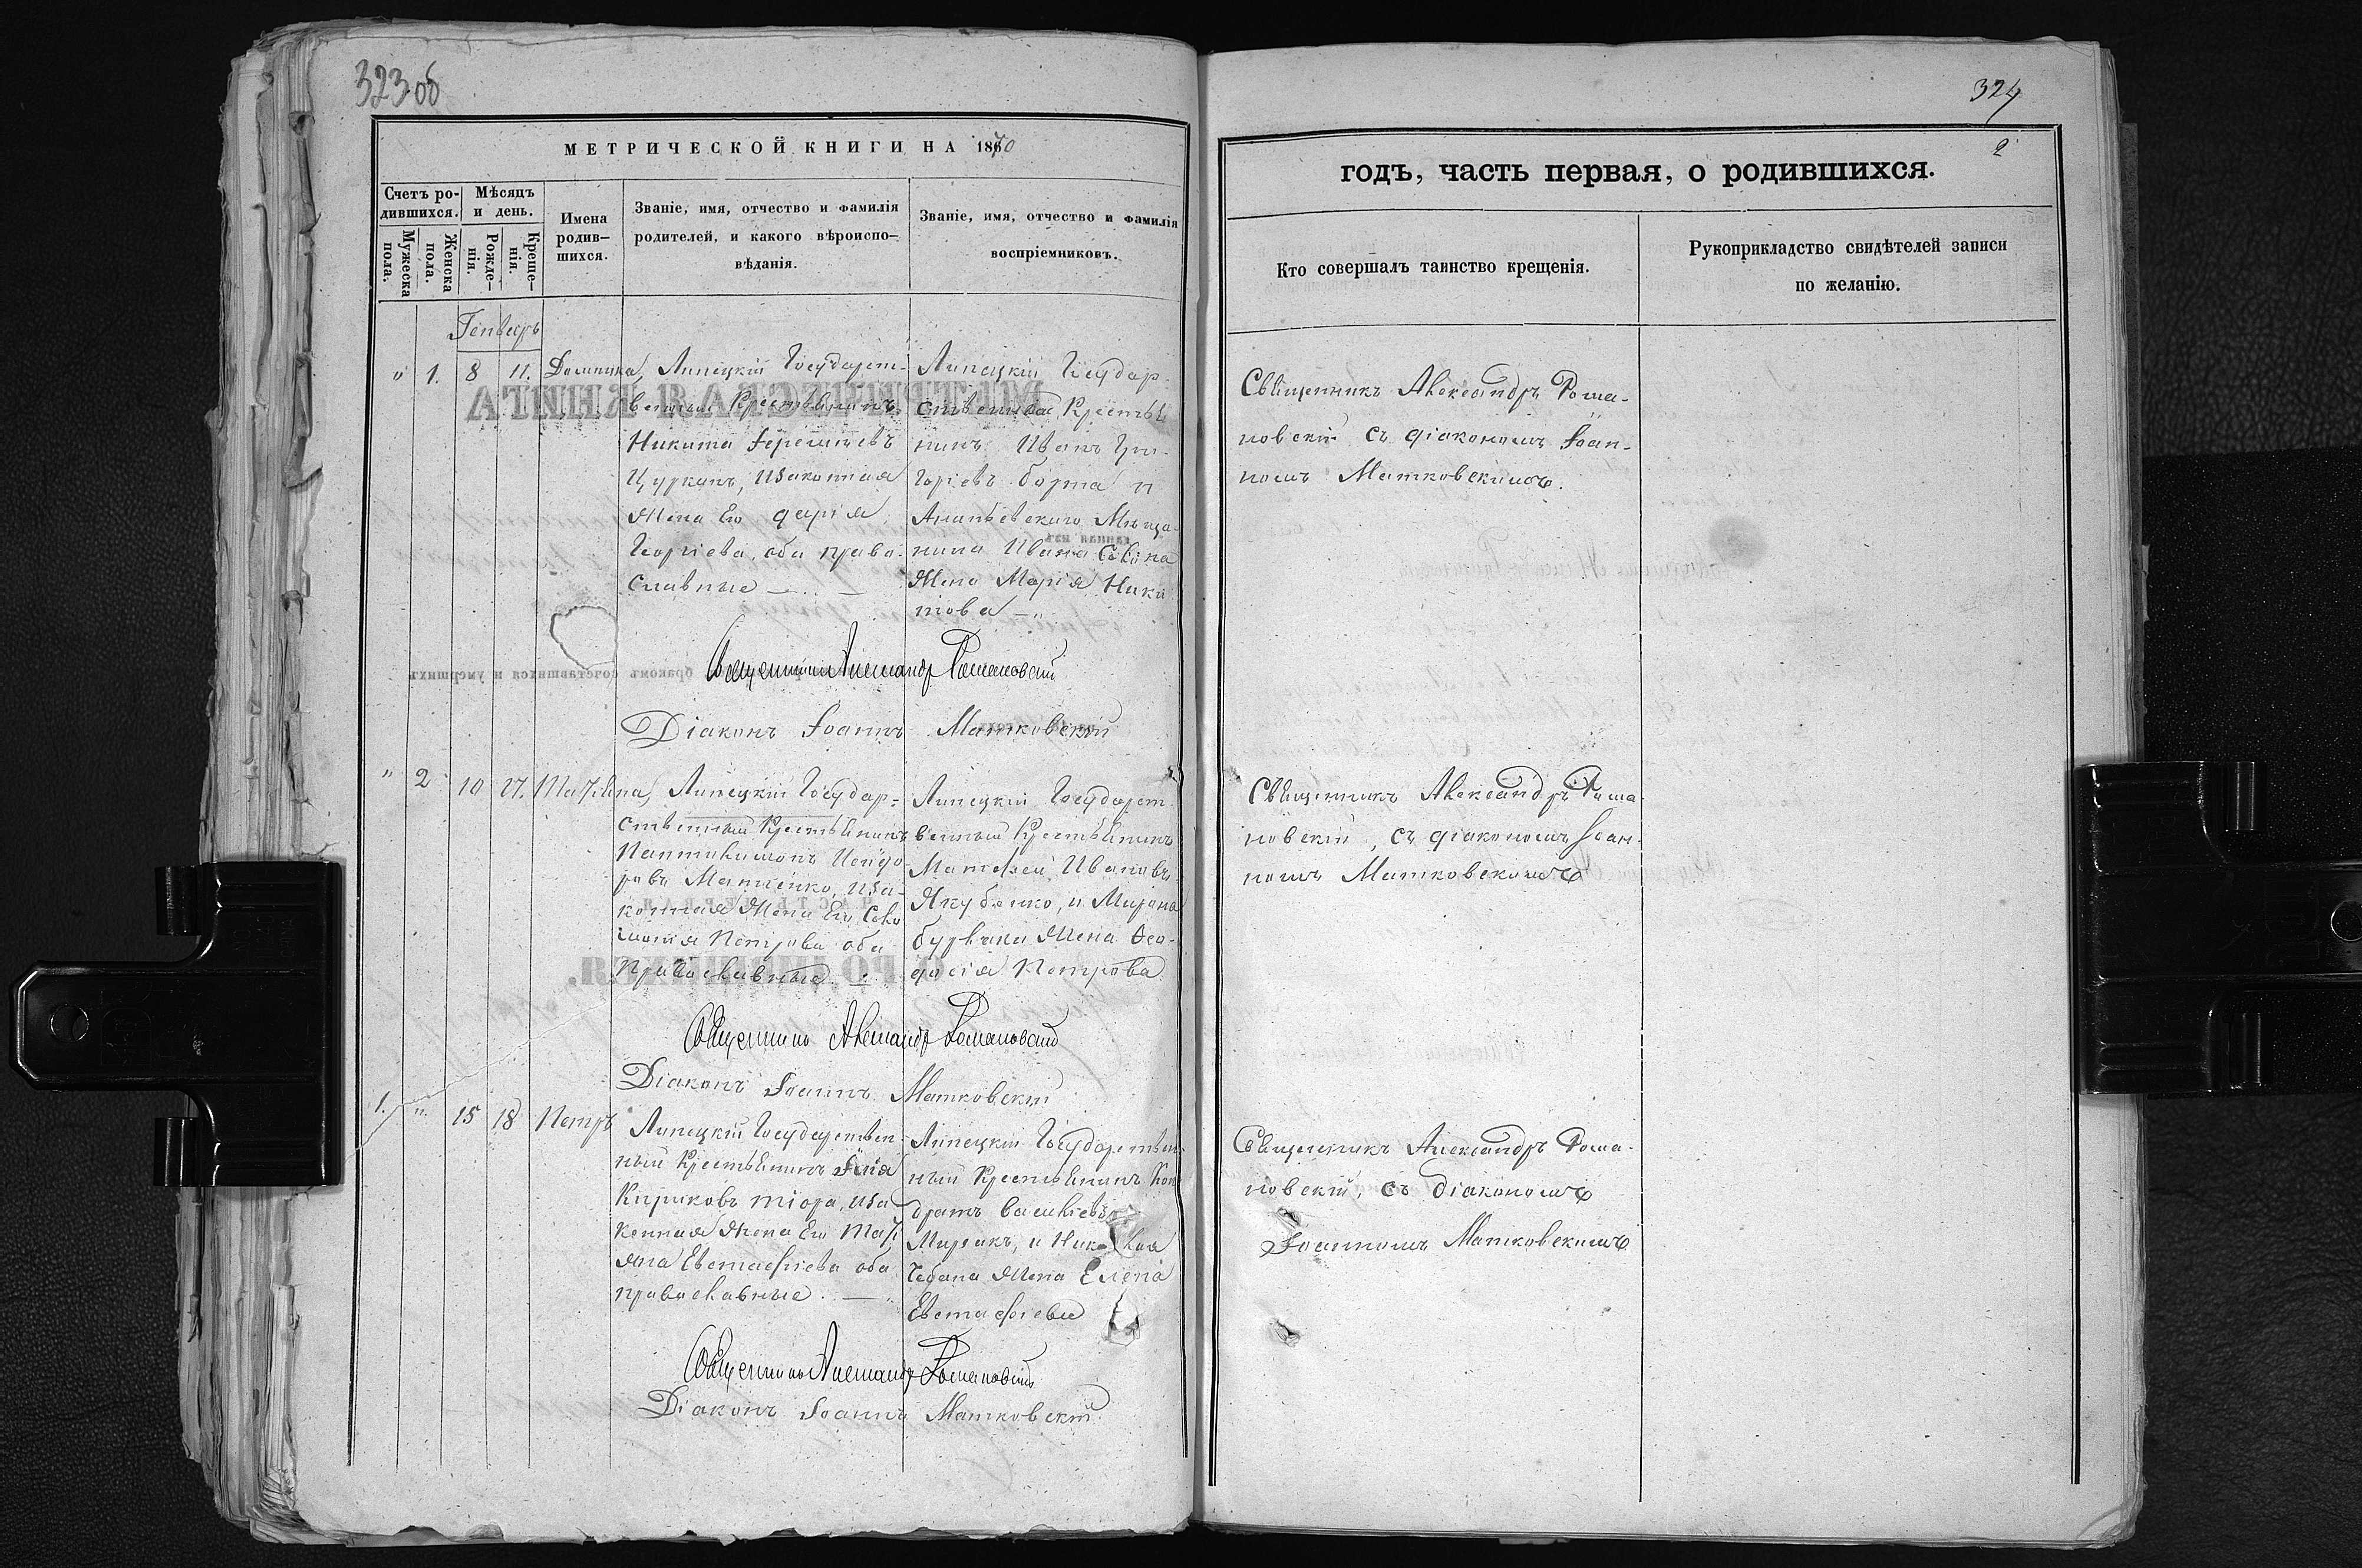 323 об
МЕТРИЧЕСКОЙ КНИГИ НА 1870
Счетъ ро-
дившихся.
Мужеска
пола.
Женска
пола.
Мѣсяцъ
и день.
Рожде-
нія.
Креще-
нія.
Имена
родив-
шихся.
Званіе, имя, отчество и фамилія
родителей, и какого вѣроиспо-
вѣданія.
Званіе, имя, отчество и фамилія
воспріемниковъ.
Генваръ
" 1. 8 11. Домникa,
Липецкій Государст-
венный Крестьянинъ
Никита
Цурканъ, изаконная
Жена Его Дарія
Георгіева, оба право-
славные
Липецкій Государ-
ственный Крестья
нинъ Иванъ Гри-
горіевъ Борта и
Ананьевскаго Мѣща-
нина Ивана Савина
Жена Марія Ники
това
Священникъ Александръ Романовскій
Діаконъ Іоаннъ Матковскій
" 2 10 17. Татіана,
Липецкій Государ-
ственный Крестьянинъ
Пантилимонъ Исидо
ровъ Матіенко, иза-
конная Жена Его
Петрова оба
Православные
Липецкій Государст-
венный Крестьянинъ
Матѳей Ивановъ
Якубенко, и Мирона
Жена Ѳео-
досія Петрова
Священникъ Александръ Романовскій
Діаконъ Іоаннъ Матковскій
1. " 15 18 Петръ
Липецкій Государствен-
ный Крестьянинъ Илія
Кириковъ Тіора, иза
конная Жена Его Таті
яна Евстафіева оба
православные.
Липецкій Государствен
ный Крестьянинъ Кон
дратъ Василіевъ
и Николая
Чебана Жена Елена
Евстафіева
Священникъ Александръ Романовскій
Діаконъ Іоаннъ Матковскій
324
2
годъ, часть первая, о родившихся.
Кто совершалъ таинство крещенія.
Рукоприкладство свидѣтелей записи
по желанію.
Священникъ Александръ Рома-
новскій съ діакономъ Іоан-
номъ Матковскимъ.
Священникъ Александръ Рома-
новскій, съ діакономъ Іоан-
номъ Матковскимъ
Священникъ Александръ Рома-
новскій, съ Діакономъ
Іоанномъ Матковскимъ